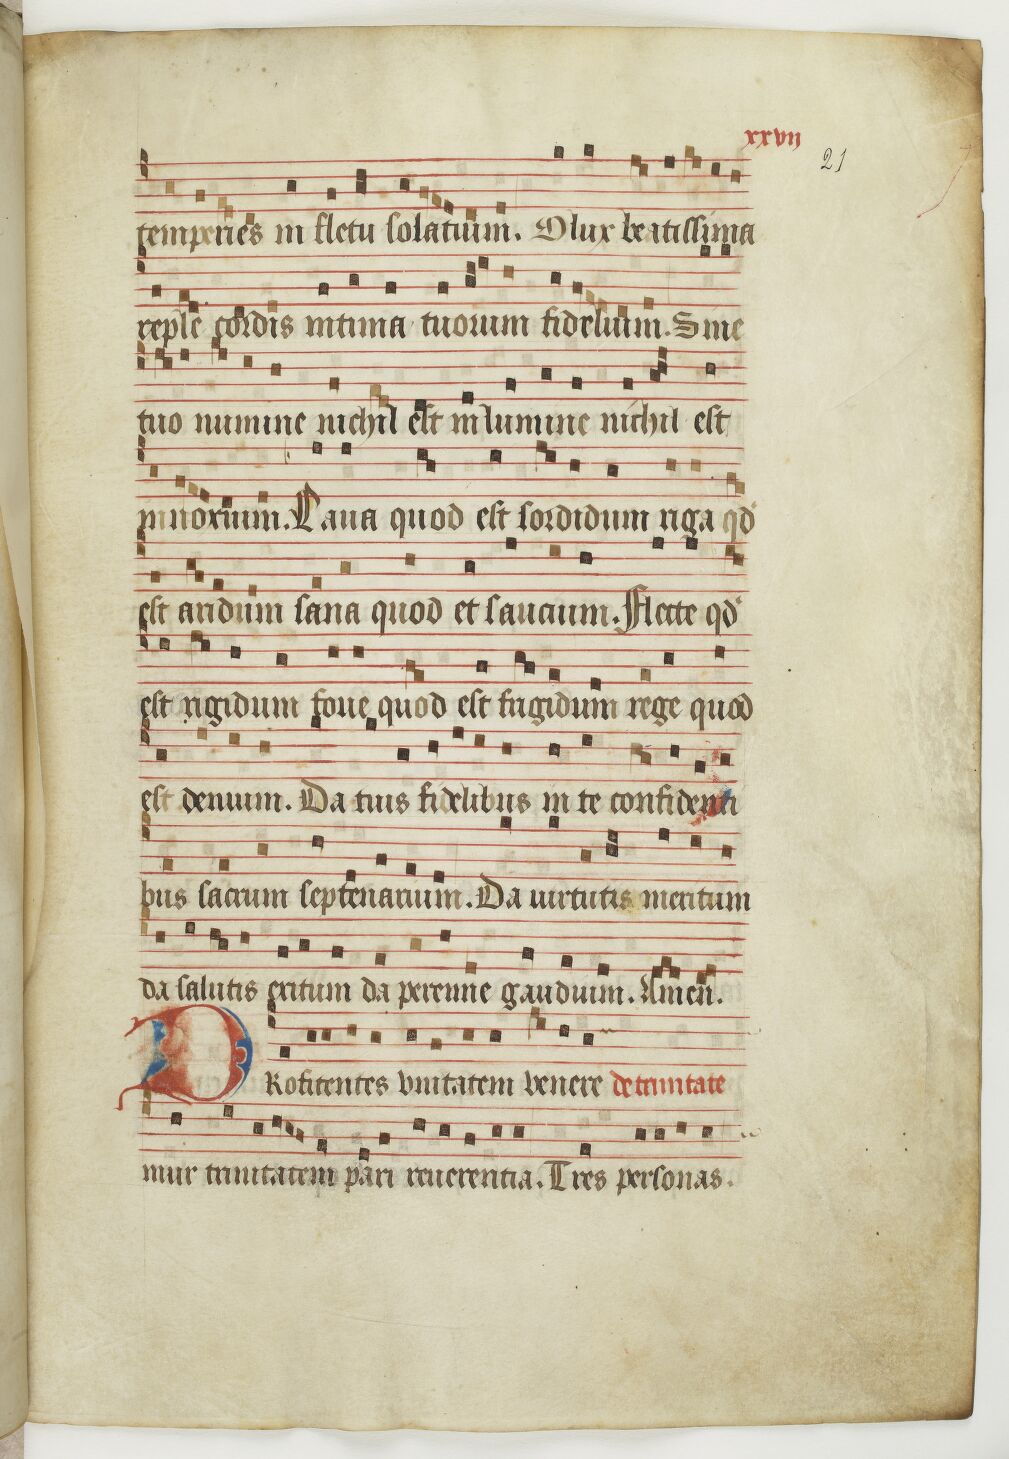 xxvii
21
temperies in fletu solatium. O lux beatissima
reple cordis intima tuorum fidelium. Sine
tuo numine nichil est in lumine nichil est
innoxium. Laua quod est sordidum riga qd
est aridum sana quod et saucium. Flecte qd
est rigidum foue quod est frigidum rege quod
est deuium. Da tuis fidelibus in te confidenti
bus sacrum septenarium. Da uirtutis meritum
da salutis exitum da perenne gaudium. Amen.
PRofitentes vnitatem venere de trinitate
mur trinitatem pari reuerentia. Tres personas.